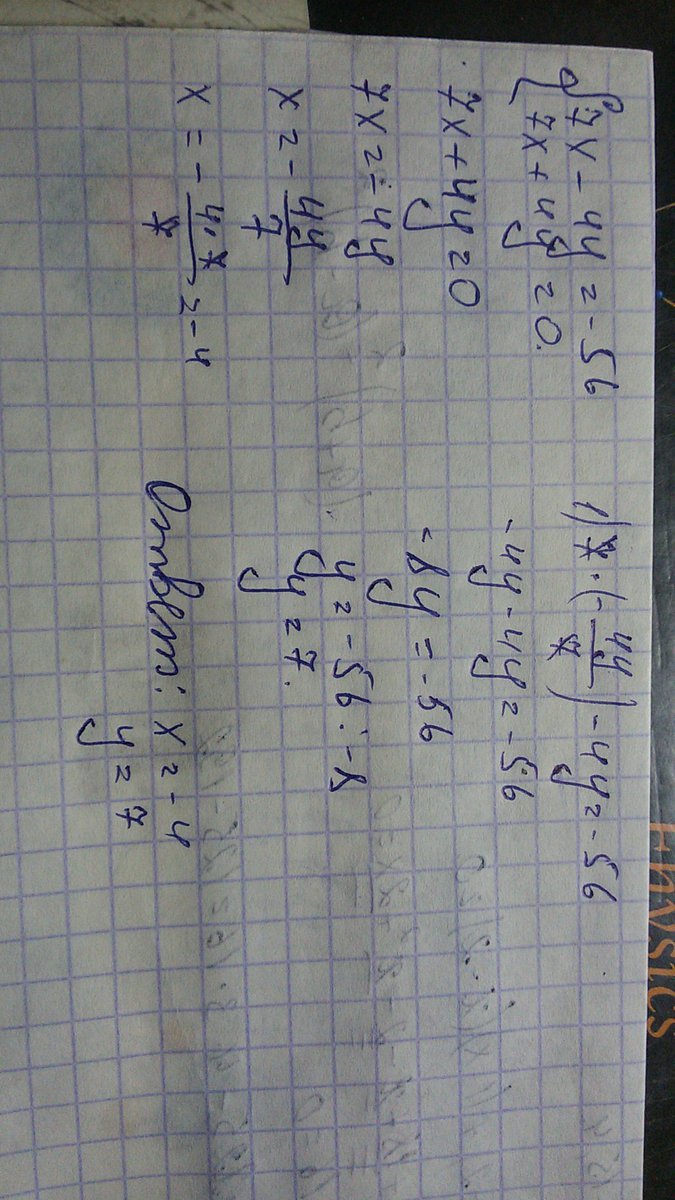 {7x - 4y = -56
7x + 4y = 0.
7x + 4y = 0
7x = -4y
x = - 4y/7
x = - 4·7/7 = -4
1) 7·(- 4y/7) - 4y = -56
-4y - 4y = -56
-8y = -56
y = -56 : -8
y = 7.
Ответ: x = -4
y = 7
Physics